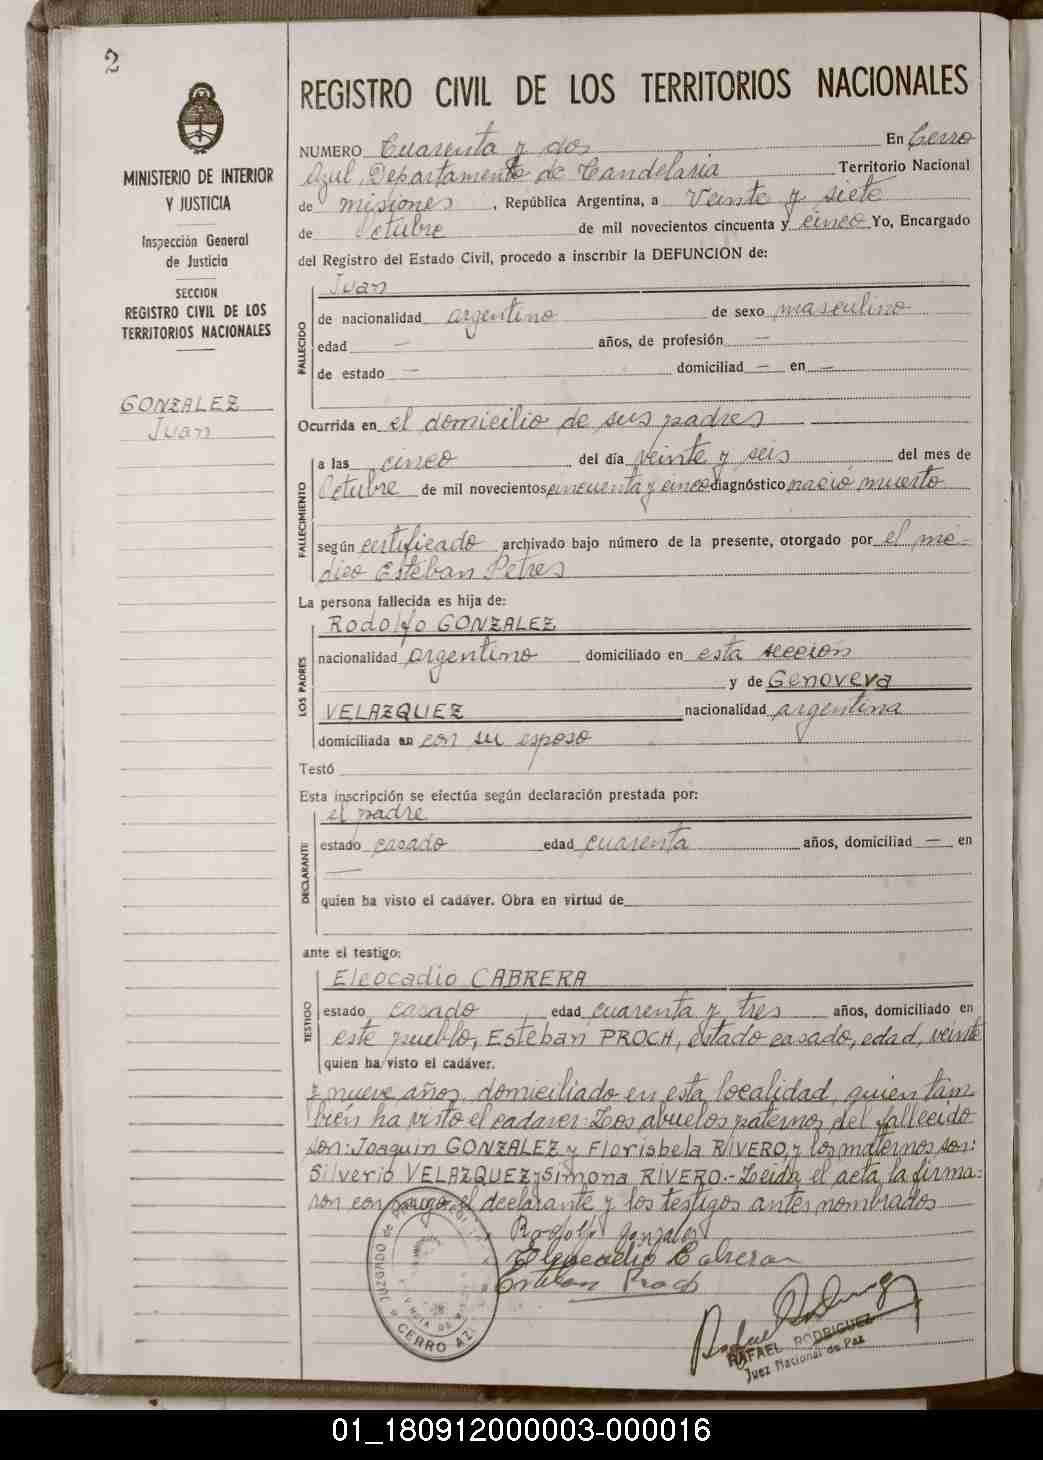 2
MINISTERIO DE INTERIOR
Y JUSTICIA
Inspección General
de Justicia
SECCION
REGISTRO CIVIL DE LOS
TERRITORIOS NACIONALES
GONZALEZ
Juan
REGISTRO CIVIL DE LOS TERRITORIOS NACIONALES
NUMERO Cuarenta y dos En Cerro
Azul, Departamento de Candelaria Territorio Nacional
de misiones, República Argentina, a Veinte y siete
de Octubre de mil novecientos cincuenta y cinco Yo, Encargado
del Registro del Estado Civil, procedo a inscribir la DEFUNCION de:
FALLECIDO
Juan
de nacionalidad argentino de sexo masculino
edad — años, de profesión —
de estado — domiciliad — en —
Ocurrida en el domicilio de sus padres
FALLECIMIENTO
a las cinco del día veinte y seis del mes de
Octubre de mil novecientos cincuenta y cinco diagnóstico nació muerto
según certificado archivado bajo número de la presente, otorgado por el mé-
dico Esteban Petres
La persona fallecida es hija de:
LOS PADRES
Rodolfo GONZALEZ
nacionalidad argentino domiciliado en esta sección
y de Genoveva
VELAZQUEZ nacionalidad argentina
domiciliada en con su esposo
Testó
Esta inscripción se efectúa según declaración prestada por:
DECLARANTE
el padre
estado casado edad cuarenta años, domiciliad — en
—
quien ha visto el cadáver. Obra en virtud de
ante el testigo:
TESTIGO
Eleocadio CABRERA
estado casado edad cuarenta y tres años, domiciliado en
este pueblo, Esteban PROCH, estado casado, edad, veinte
quien ha visto el cadáver.
y nueve años, domiciliado en esta localidad, quien tam-
bién ha visto el cadaver. Los abuelos paternos del fallecido
son: Joaquin GONZALEZ y Florisbela RIVERO, y los maternos son:
Silverio VELAZQUEZ y Simona RIVERO.- Leída el acta, la firma-
ron conmigo, el declarante y los testigos antes nombrados
Rodolfo Gonzales
Eleocadio Cabrera
Esteban Proch
JUZGADO DE PAZ
CERRO AZUL
RAFAEL RODRIGUEZ
Juez Nacional de Paz
01_180912000003-000016